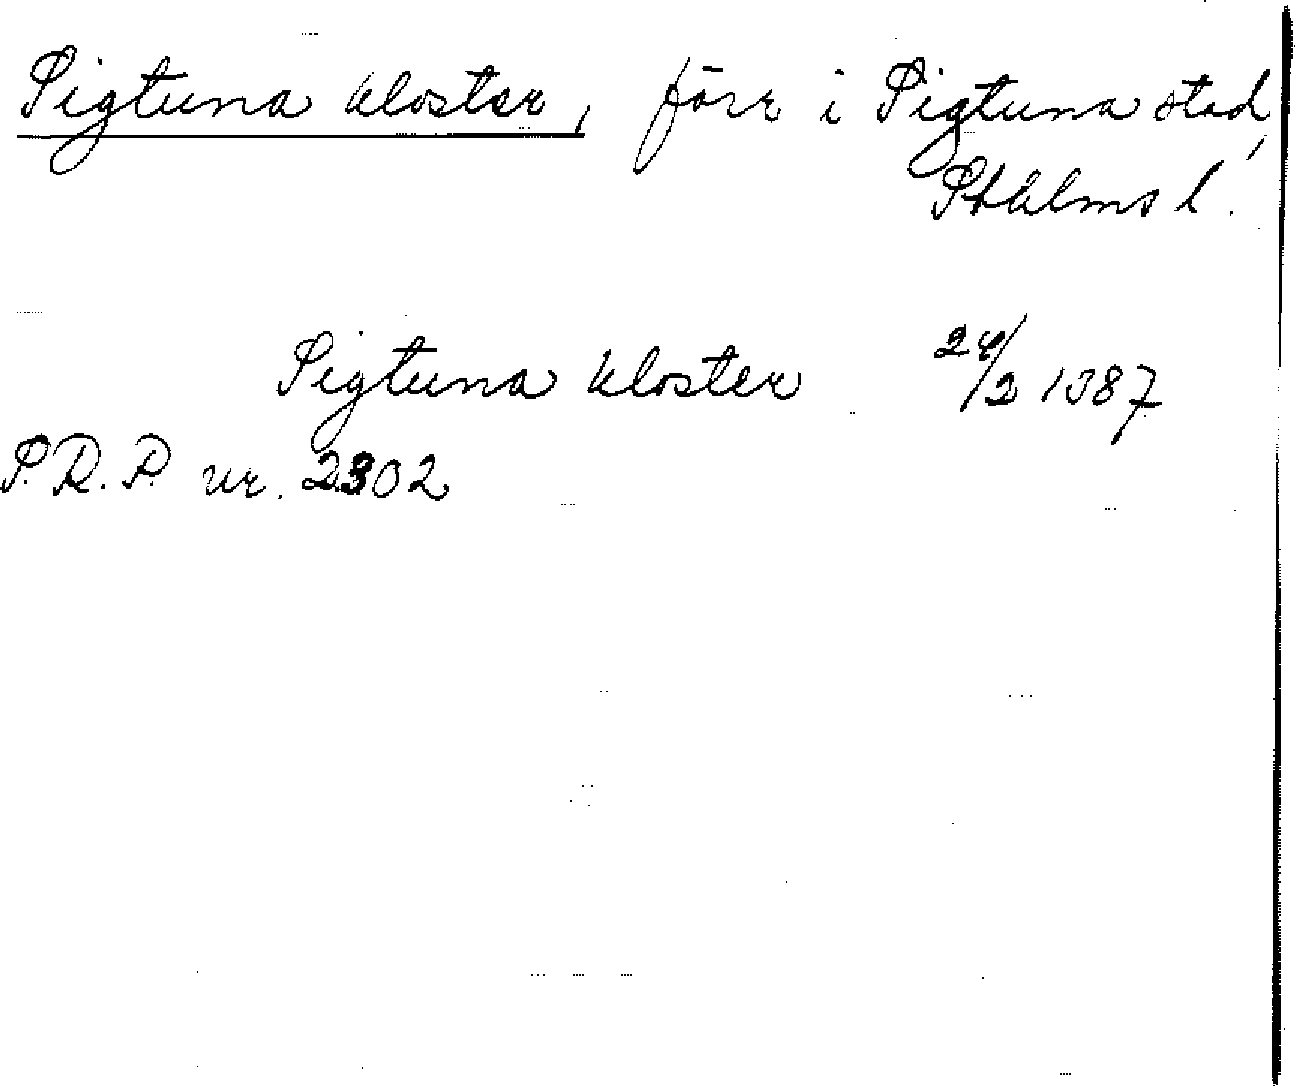 Sigtuna kloster, förr i Sigtuna stad,
Sthlms l.
Sigtuna kloster 24/2 1387
S.R.P. nr. 2302